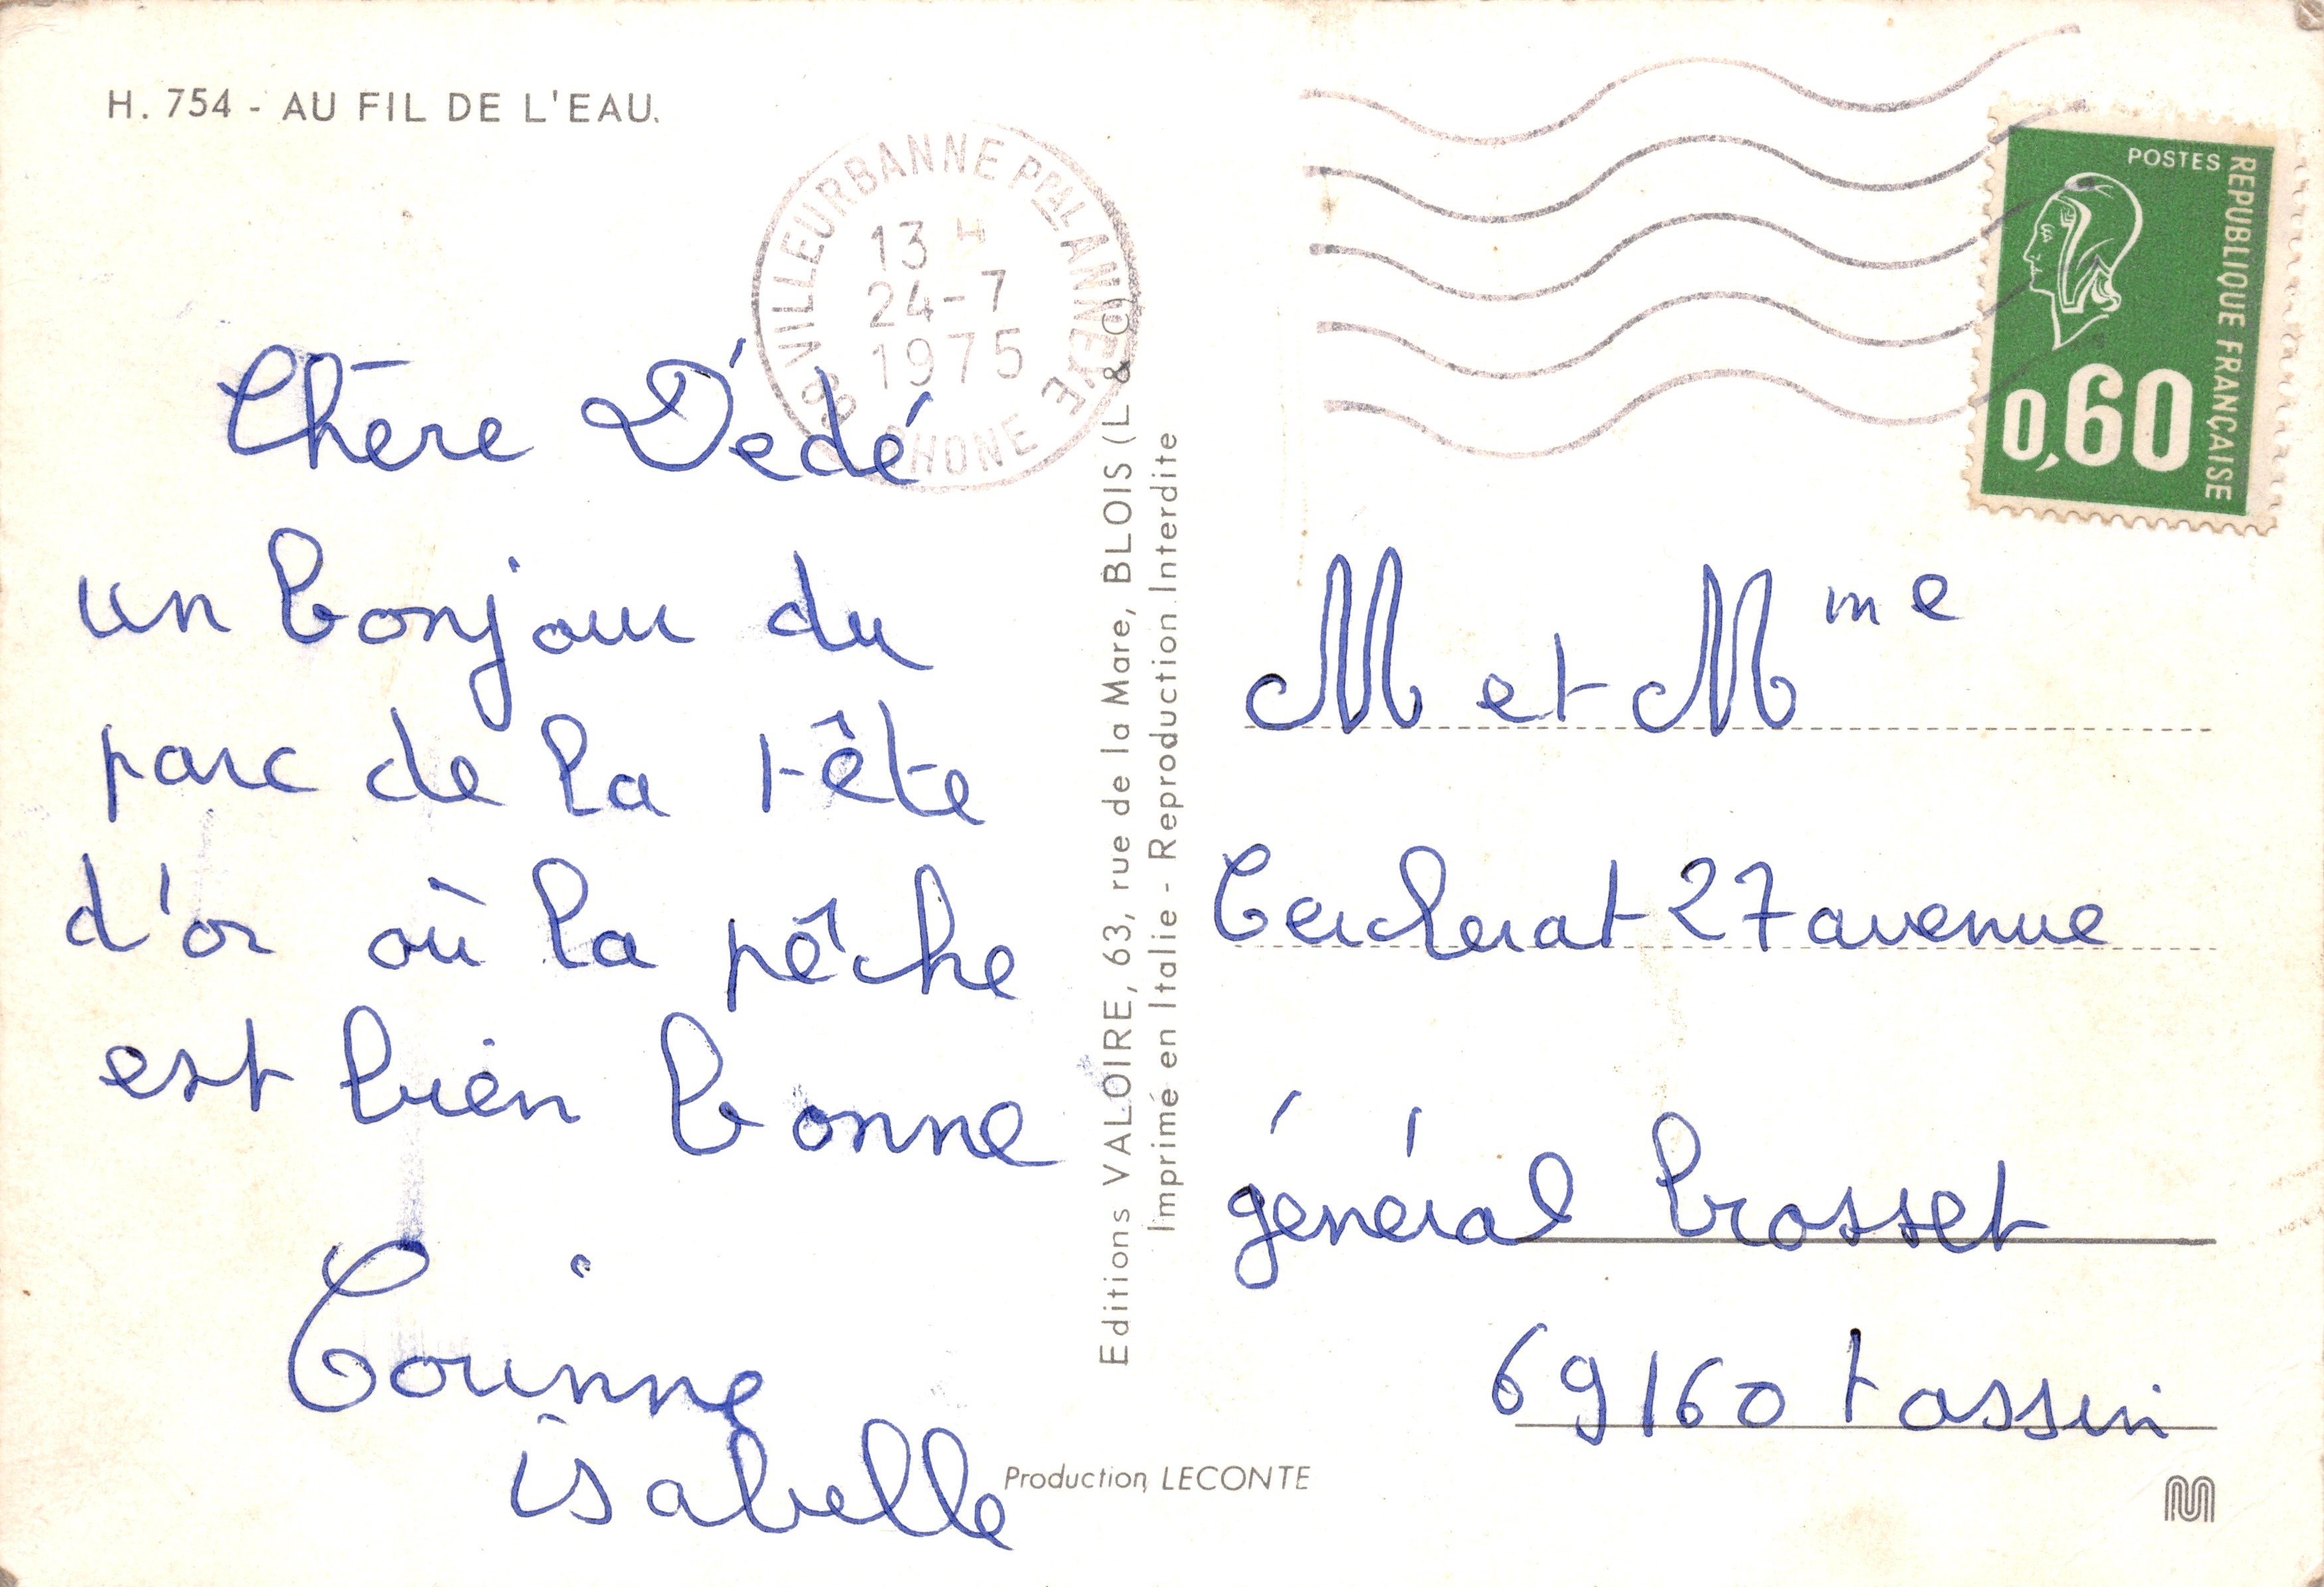 H. 754 - AU FIL DE L'EAU.
VILLEURBANNE Pᵖᵃˡ ANNEXE
13 H
24-7
1975
69 RHONE
POSTES
REPUBLIQUE FRANÇAISE
0,60
Chère Dédé
un bonjour du
parc de la tête
d'or où la pêche
est bien bonne
Corinne
isabelle
Editions VALOIRE, 63, rue de la Mare, BLOIS (L. & C)
Imprimé en Italie - Reproduction Interdite
Production LECONTE
M et Mme
27 avenue
général brosset
69160 tassin